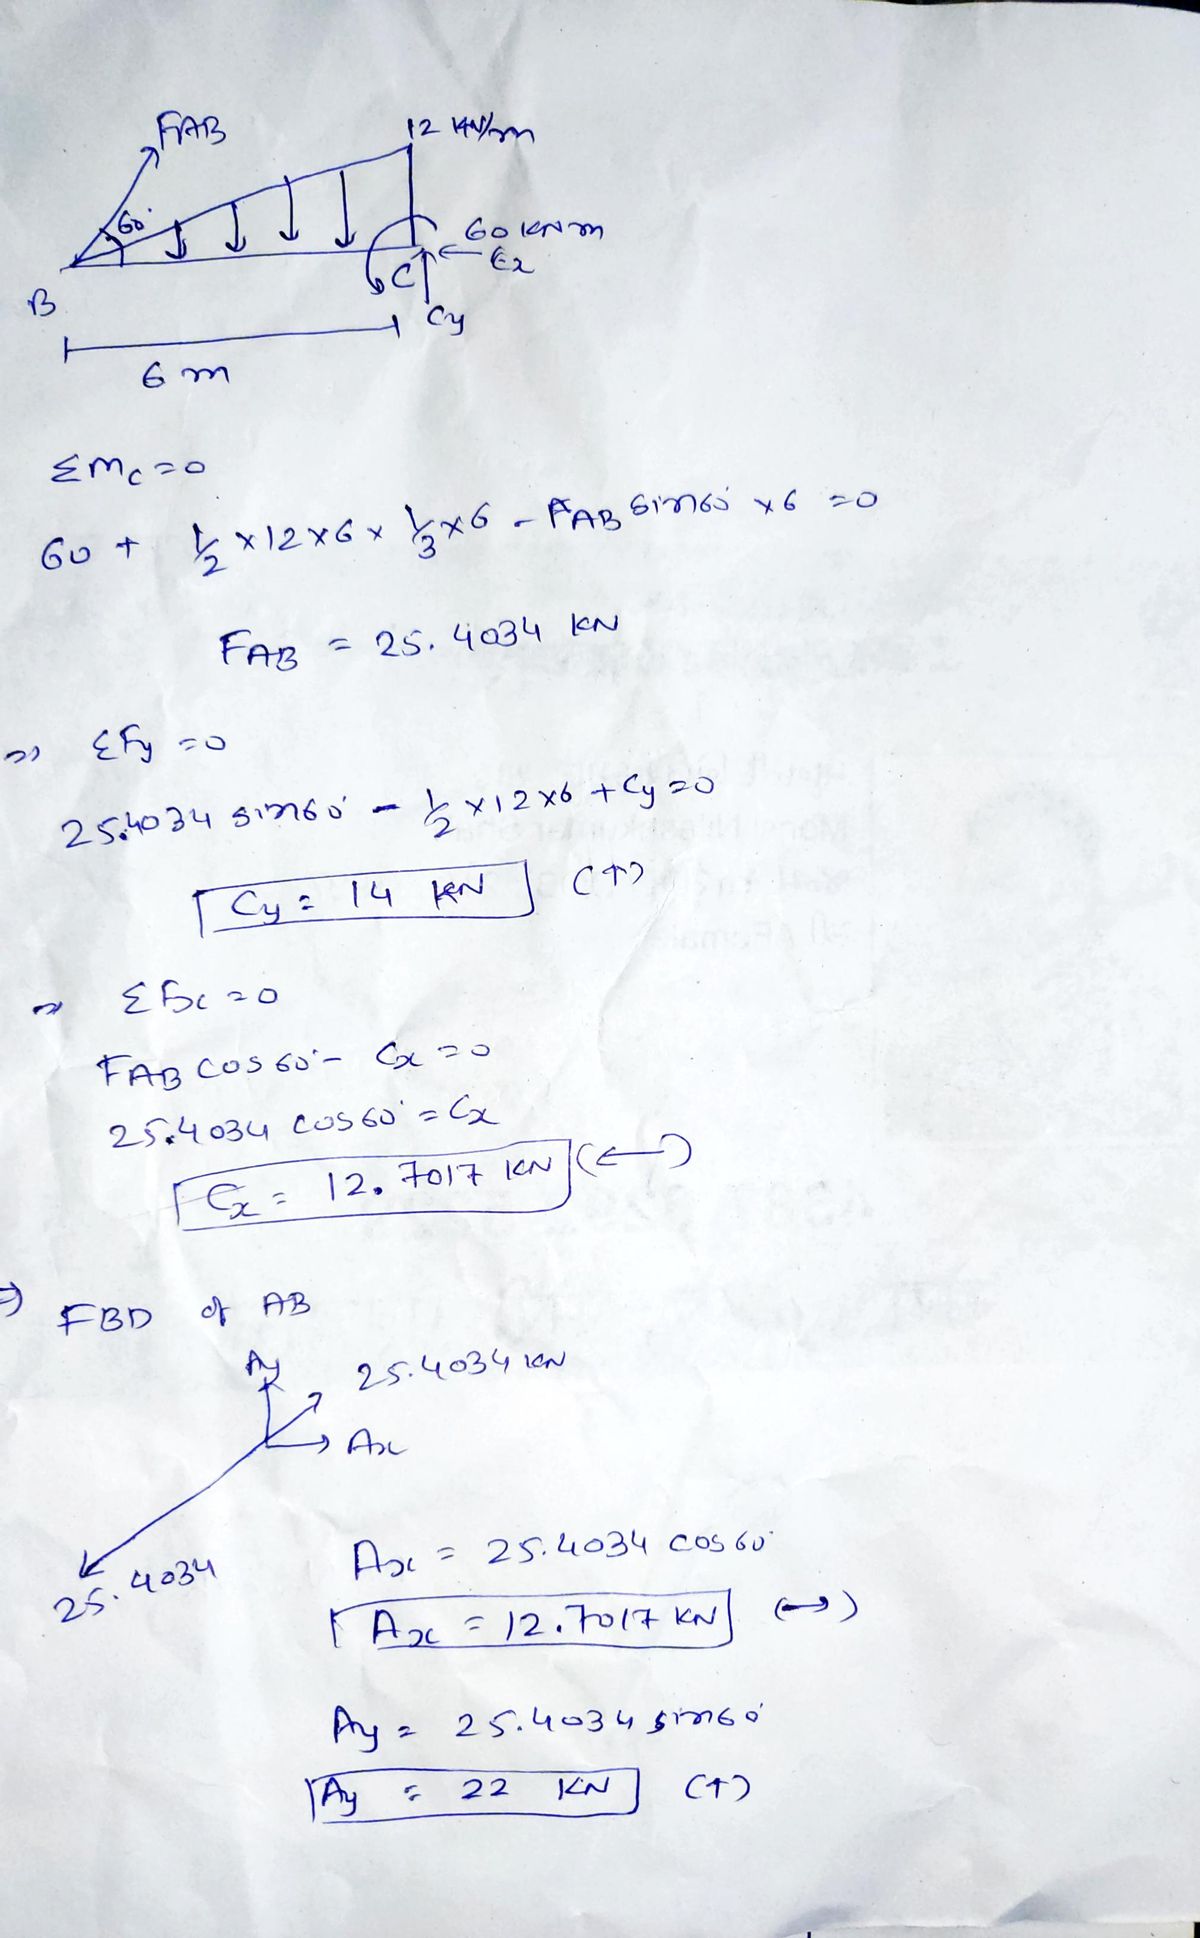 FAB
12 KN/m
60°
60 KNm
C
Cx
Cy
B
6 m
ΣMc=0
60 + 1/2 ×12×6× 1/3×6 - FAB sin60° ×6 =0
FAB = 25.4034 KN
⇒ ΣFy =0
25.4034 sin60° - 1/2 ×12×6 + Cy=0
Cy = 14 KN (↑)
⇒ ΣFx =0
FAB cos60° - Cx =0
25.4034 cos60° = Cx
Cx = 12.7017 KN (←)
⇒ FBD of AB
Ay
25.4034 KN
Ax
25.4034
Ax = 25.4034 cos60°
Ax = 12.7017 KN (→)
Ay = 25.4034 sin60°
Ay = 22 KN (↑)